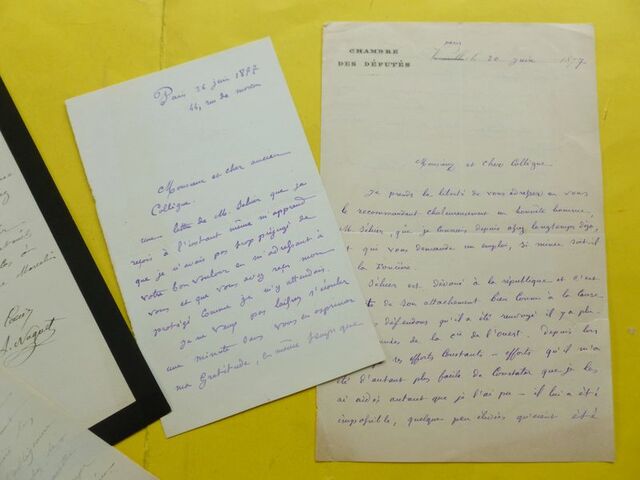 Paris 26 juin 1877
44, rue de
Monsieur et cher ancien
Collègue.
une lettre de M. Sehier que je
reçois à l'instant même m'apprend
que je n'avais pas trop préjugé de
votre bon vouloir en m'adressant à
vous et que vous avez reçu mon
protégé comme je m'y attendais.
Je ne veux pas laisser s'écouler
une minute sans vous en exprimer
ma gratitude, en même temps que
CHAMBRE
DES DÉPUTÉS
paris
le 20 juin 1877
Monsieur et cher Collègue
Je prends la liberté de vous adresser en vous
le recommandant chaleureusement un honnête homme,
M. Sehier, que je connais depuis assez longtemps déjà,
et qui vous demande un emploi, si mince soit-il
la
Sehier est dévoué à la république et c'est
de son attachement bien connu à la cause
défendons qu'il a été renvoyé il y a plu-
de la cie de l'ouest. Depuis lors
efforts constants – efforts qu'il m'a
été d'autant plus facile de constater que je les
ai aidés autant que je l'ai pu – il lui a été
impossible, quelque peu élevées qu'aient été
A. Naquet